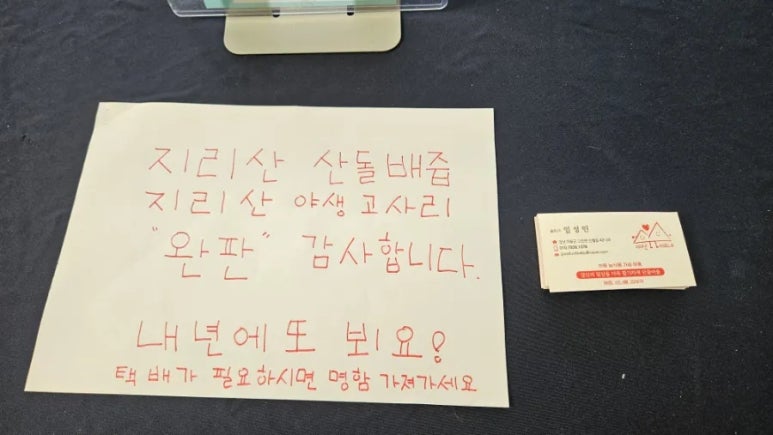 지리산 산돌배즙
지리산 야생고사리
"완판" 감사합니다.
내년에 또 뵈요!
택배가 필요하시면 명함 가져가세요
임성민